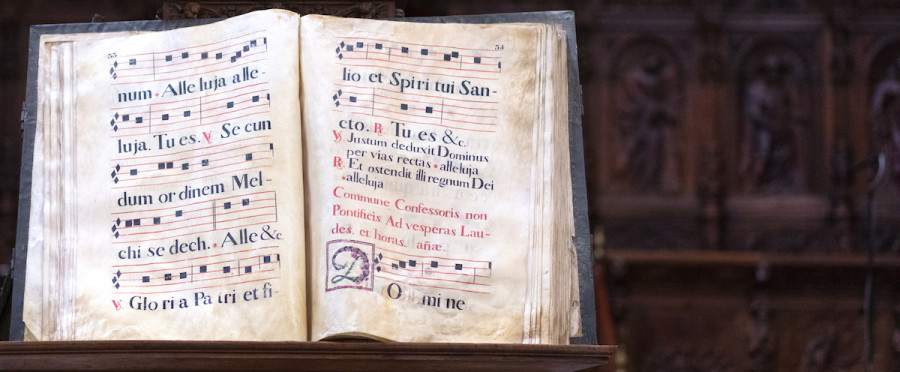 33
num. Alleluja alle-
luja. Tu es. ℣ Se cun
dum ordinem Mel-
chi se dech. Alle &c
℣ Gloria Patri et fi-
34
lio et Spiritui San-
cto. ℟ Tu es &c.
℣ Justum deduxit Dominus
per vias rectas alleluja
℟ Et ostendit illi regnum Dei
alleluja
Commune Confessoris non
Pontificis Ad vesperas Lau-
des, et horas. añæ.
DO mi ne